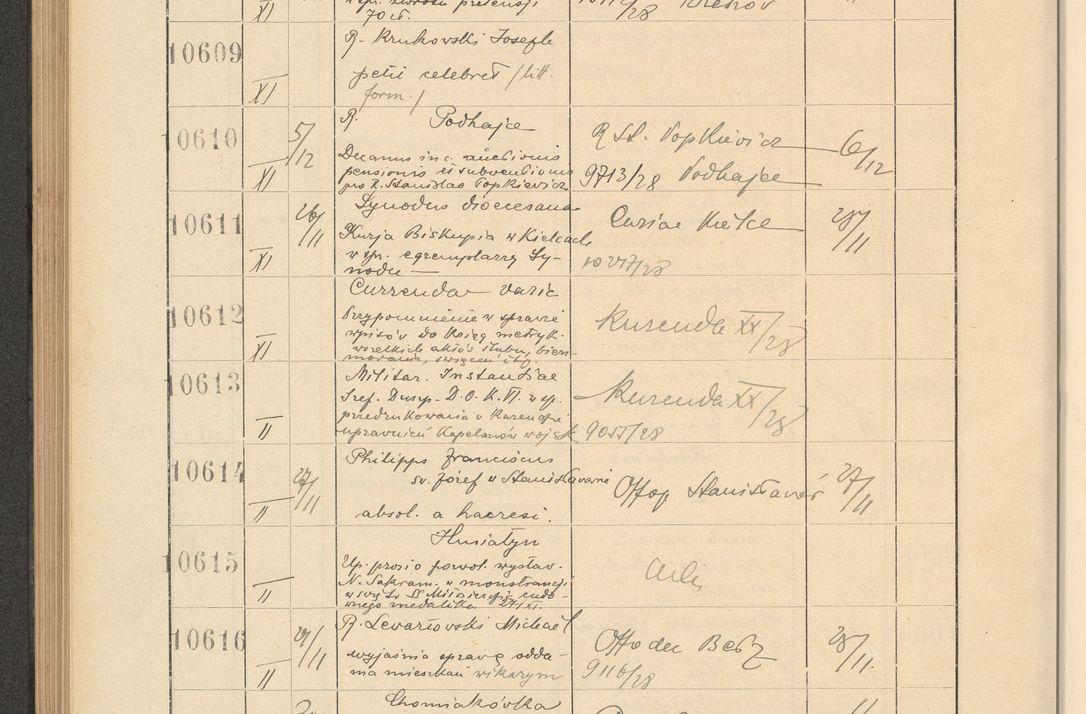 XI
70 zł.
/28
10609
XI
R. Krukovski Josefe
petit celebret /litt.
form./
10610
XI
5/12
R. Podhajce
Decanus inc. auctionis
pensionis et subventionis
pro R. Stanislao Popkievicz
R St. Popkievicz
9713/28 Podhajce
6/12
10611
XI
26/11
Synodus dioecesana
Kurja Biskupia w Kielcach
w spr. egzemplarzy Sy-
nodu
Curiae Kielce
10217/28
28/11
10612
XI
Currenda varic
Przypomnienie w sprawie
wpisów do ksiąg metryk.
wszelkich aktów ślubu, bierz-
mowania, święceń itp.
Kurenda XX/28
10613
II
Militar. Instantiae
Szef. Dusp. D.O.K. VI. w sp.
przedrukowania w Kurendzie
uprawnień Kapelanów wojsk.
Kurenda XX/28
9055/28
10614
II
27/11
Philipps Franciscus
św. Józef w Stanisławowie
absol. a haeresi.
Ottop Stanisławów
27/11
10615
II
Husiatyn
Up. prosi o pozwol. wystaw.
N. Sakram. w monstrancji
w święto
wnego medalika 27/XI.
10616
II
27/11
R. Levartovski Michael
wyjaśnia sprawę odda-
nia mieszkań wikarym
Otto dec Bełz
9116/28
28/11.
Chomiakówka